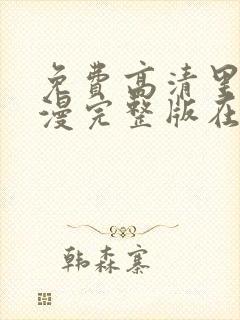 免费高清里
漫完整版在
韩森寨